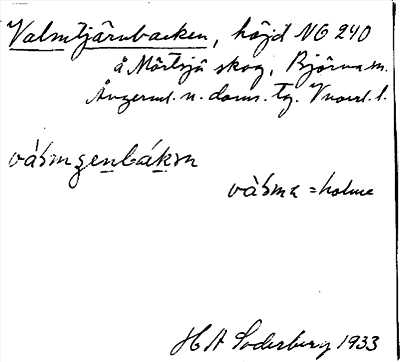 Valmtjärnbacken, höjd NG 240
å Mörtsjö skog, Björna sn.
Ångerml. n. doms. tg. Vnorrl. l.
vàsmʒenbákɐn
vàsma = holme
H A Söderberg 1933